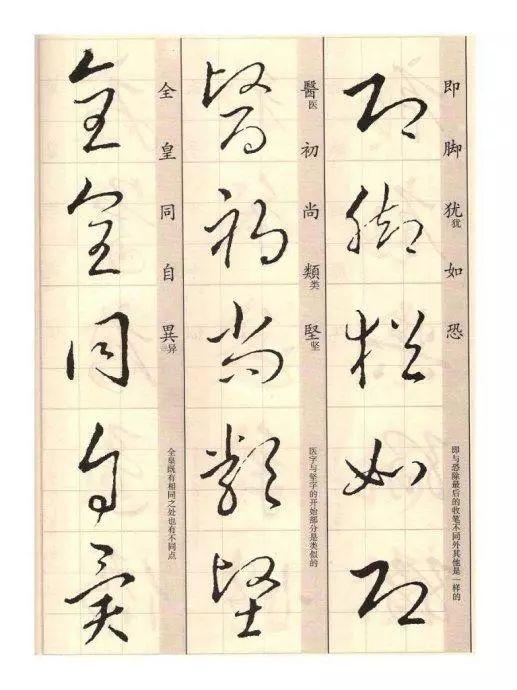 即脚猶犹如恐
即与恐除最后的收笔不同外其他是一样的
即脚猶如恐
醫医初尚類类堅坚
医字与坚字的开始部分是类似的
醫初尚類堅
全皇同自異异
全皇既有相同之处也有不同点
全皇同自異